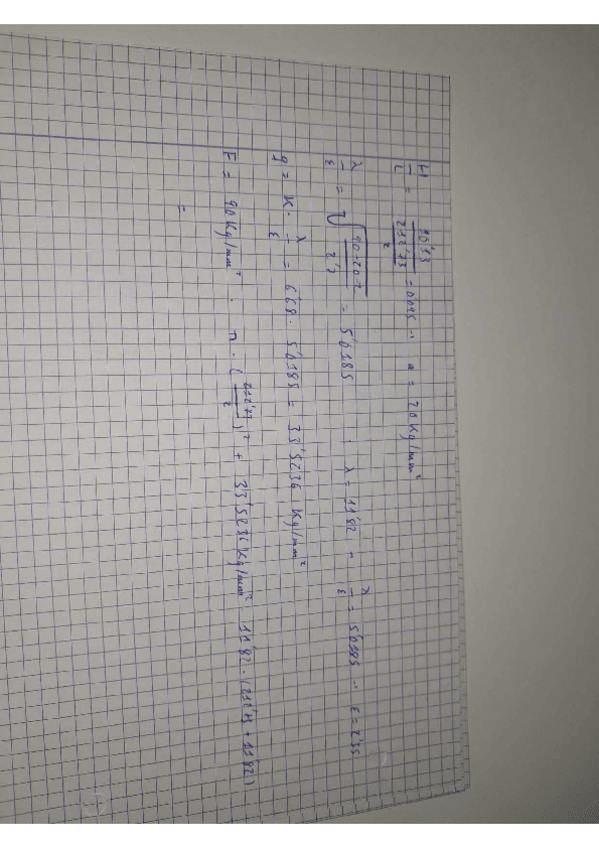 H/L = 20'33 / (212'73/2) = 0'085 ∴ a = 20 Kg/mm²
λ/ε = √((90-20)·2 / 2'2) = 5'0185 λ = 11'82 - λ/ε = 5'0185 ∴ ε = 2'35
q = K · λ/ε = 6'68 · 5'0185 = 33'5236 Kg/mm²
F = 90 Kg/mm² · π · (212'73/2)² + 33'5236 Kg/mm² 11'82 · (212'73 + 11'82)
=